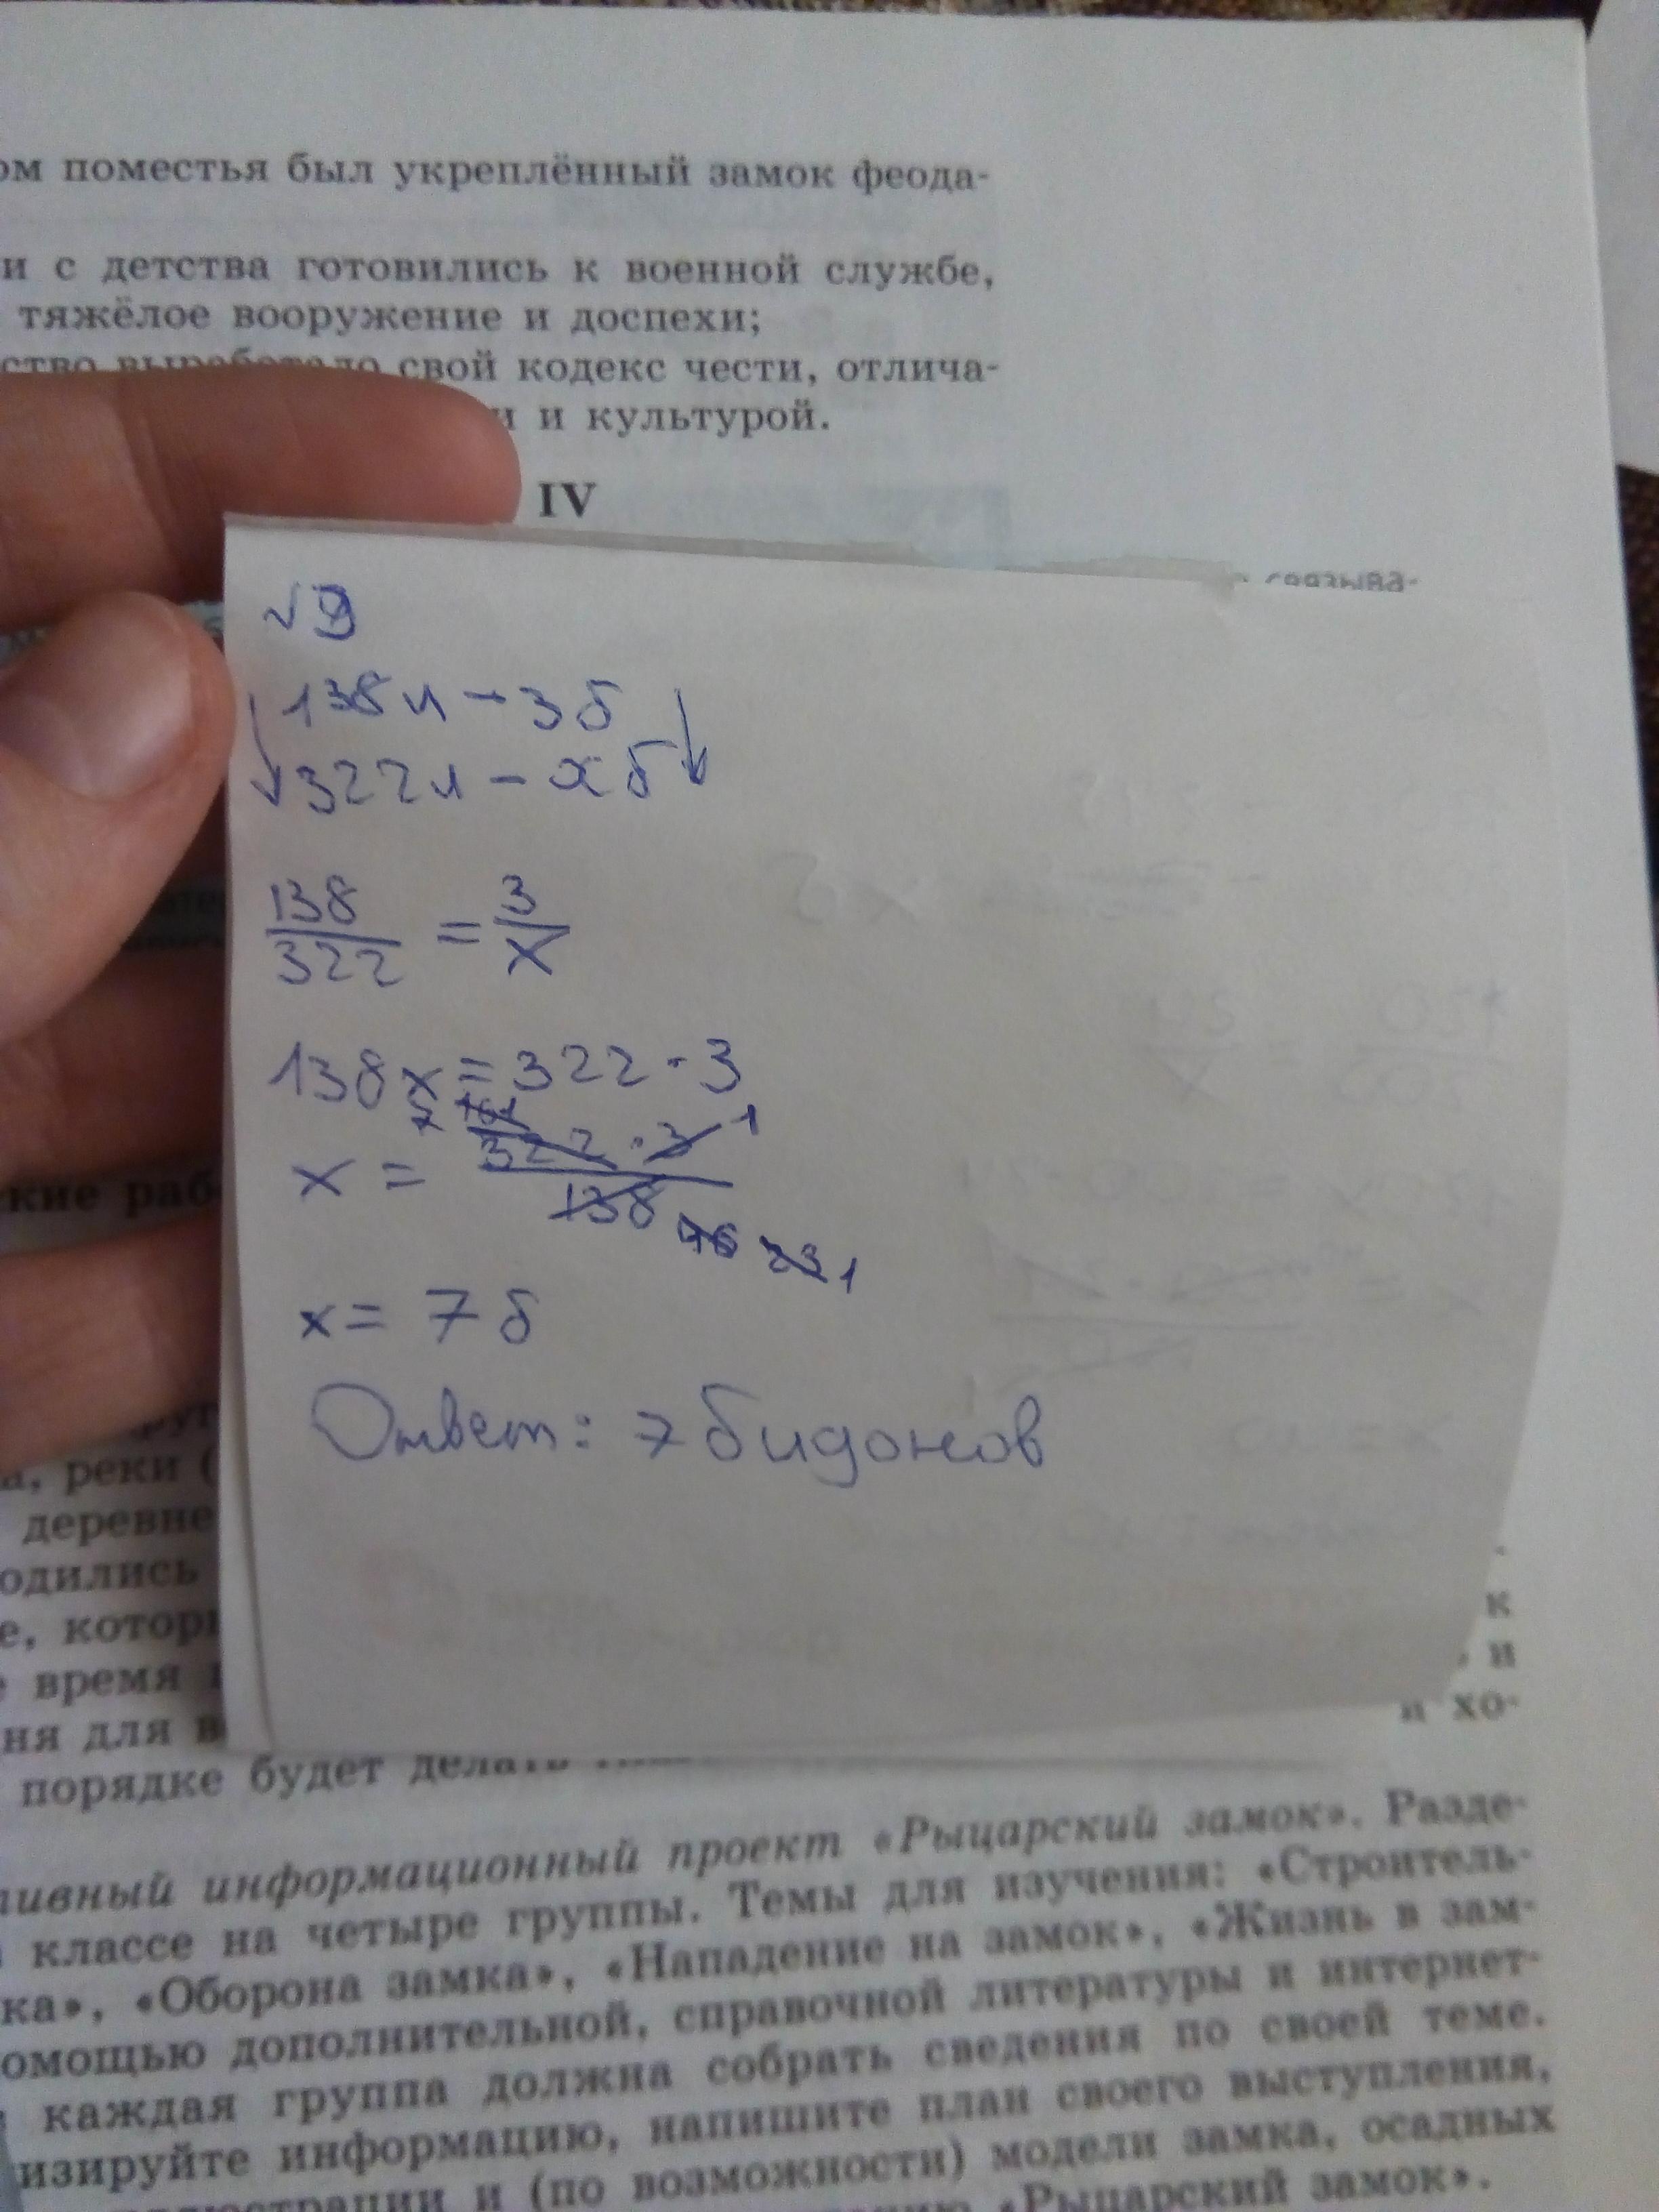 ом поместья был укреплённый замок феода-
и с детства готовились к военной службе,
тяжёлое вооружение и доспехи;
ство выработало свой кодекс чести, отлича-
и и культурой.
IV
связыва-
√9
138л - 3б
322л - хб
138/322 = 3/х
138х = 322 · 3
7 161 1
х = 322 · 3 / 138
46 23 1
х = 7 б
Ответ: 7 бидонов
ские раб
а, реки (
деревне
одились
к
е, котор
и
время
и хо-
ня для в
порядке будет делать
тивный информационный проект «Рыцарский замок». Разде-
классе на четыре группы. Темы для изучения: «Строитель-
ка», «Оборона замка», «Нападение на замок», «Жизнь в зам-
омощью дополнительной, справочной литературы и интернет-
каждая группа должна собрать сведения по своей теме.
изируйте информацию, напишите план своего выступления,
люстрации и (по возможности) модели замка, осадных
«Рыцарский замок».